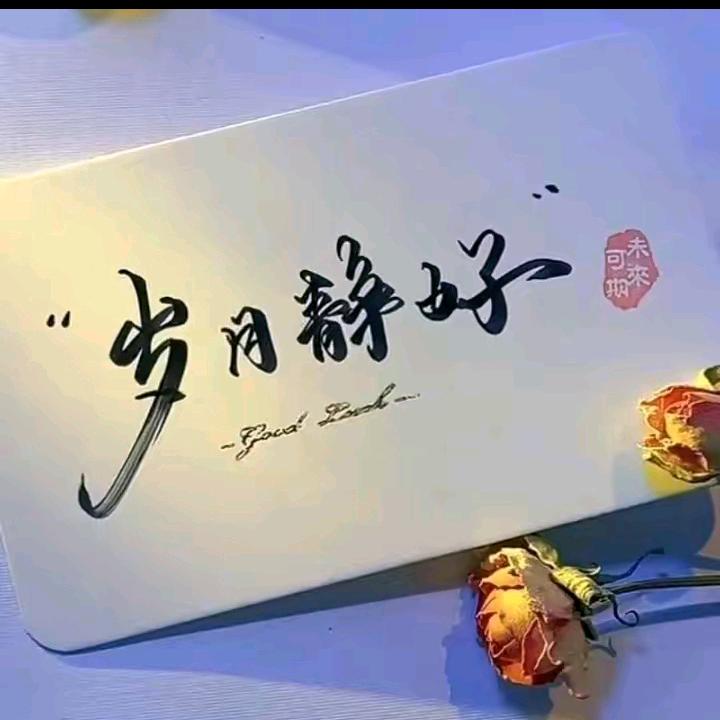 “岁月静好”
-Good Luck-
未来
可期